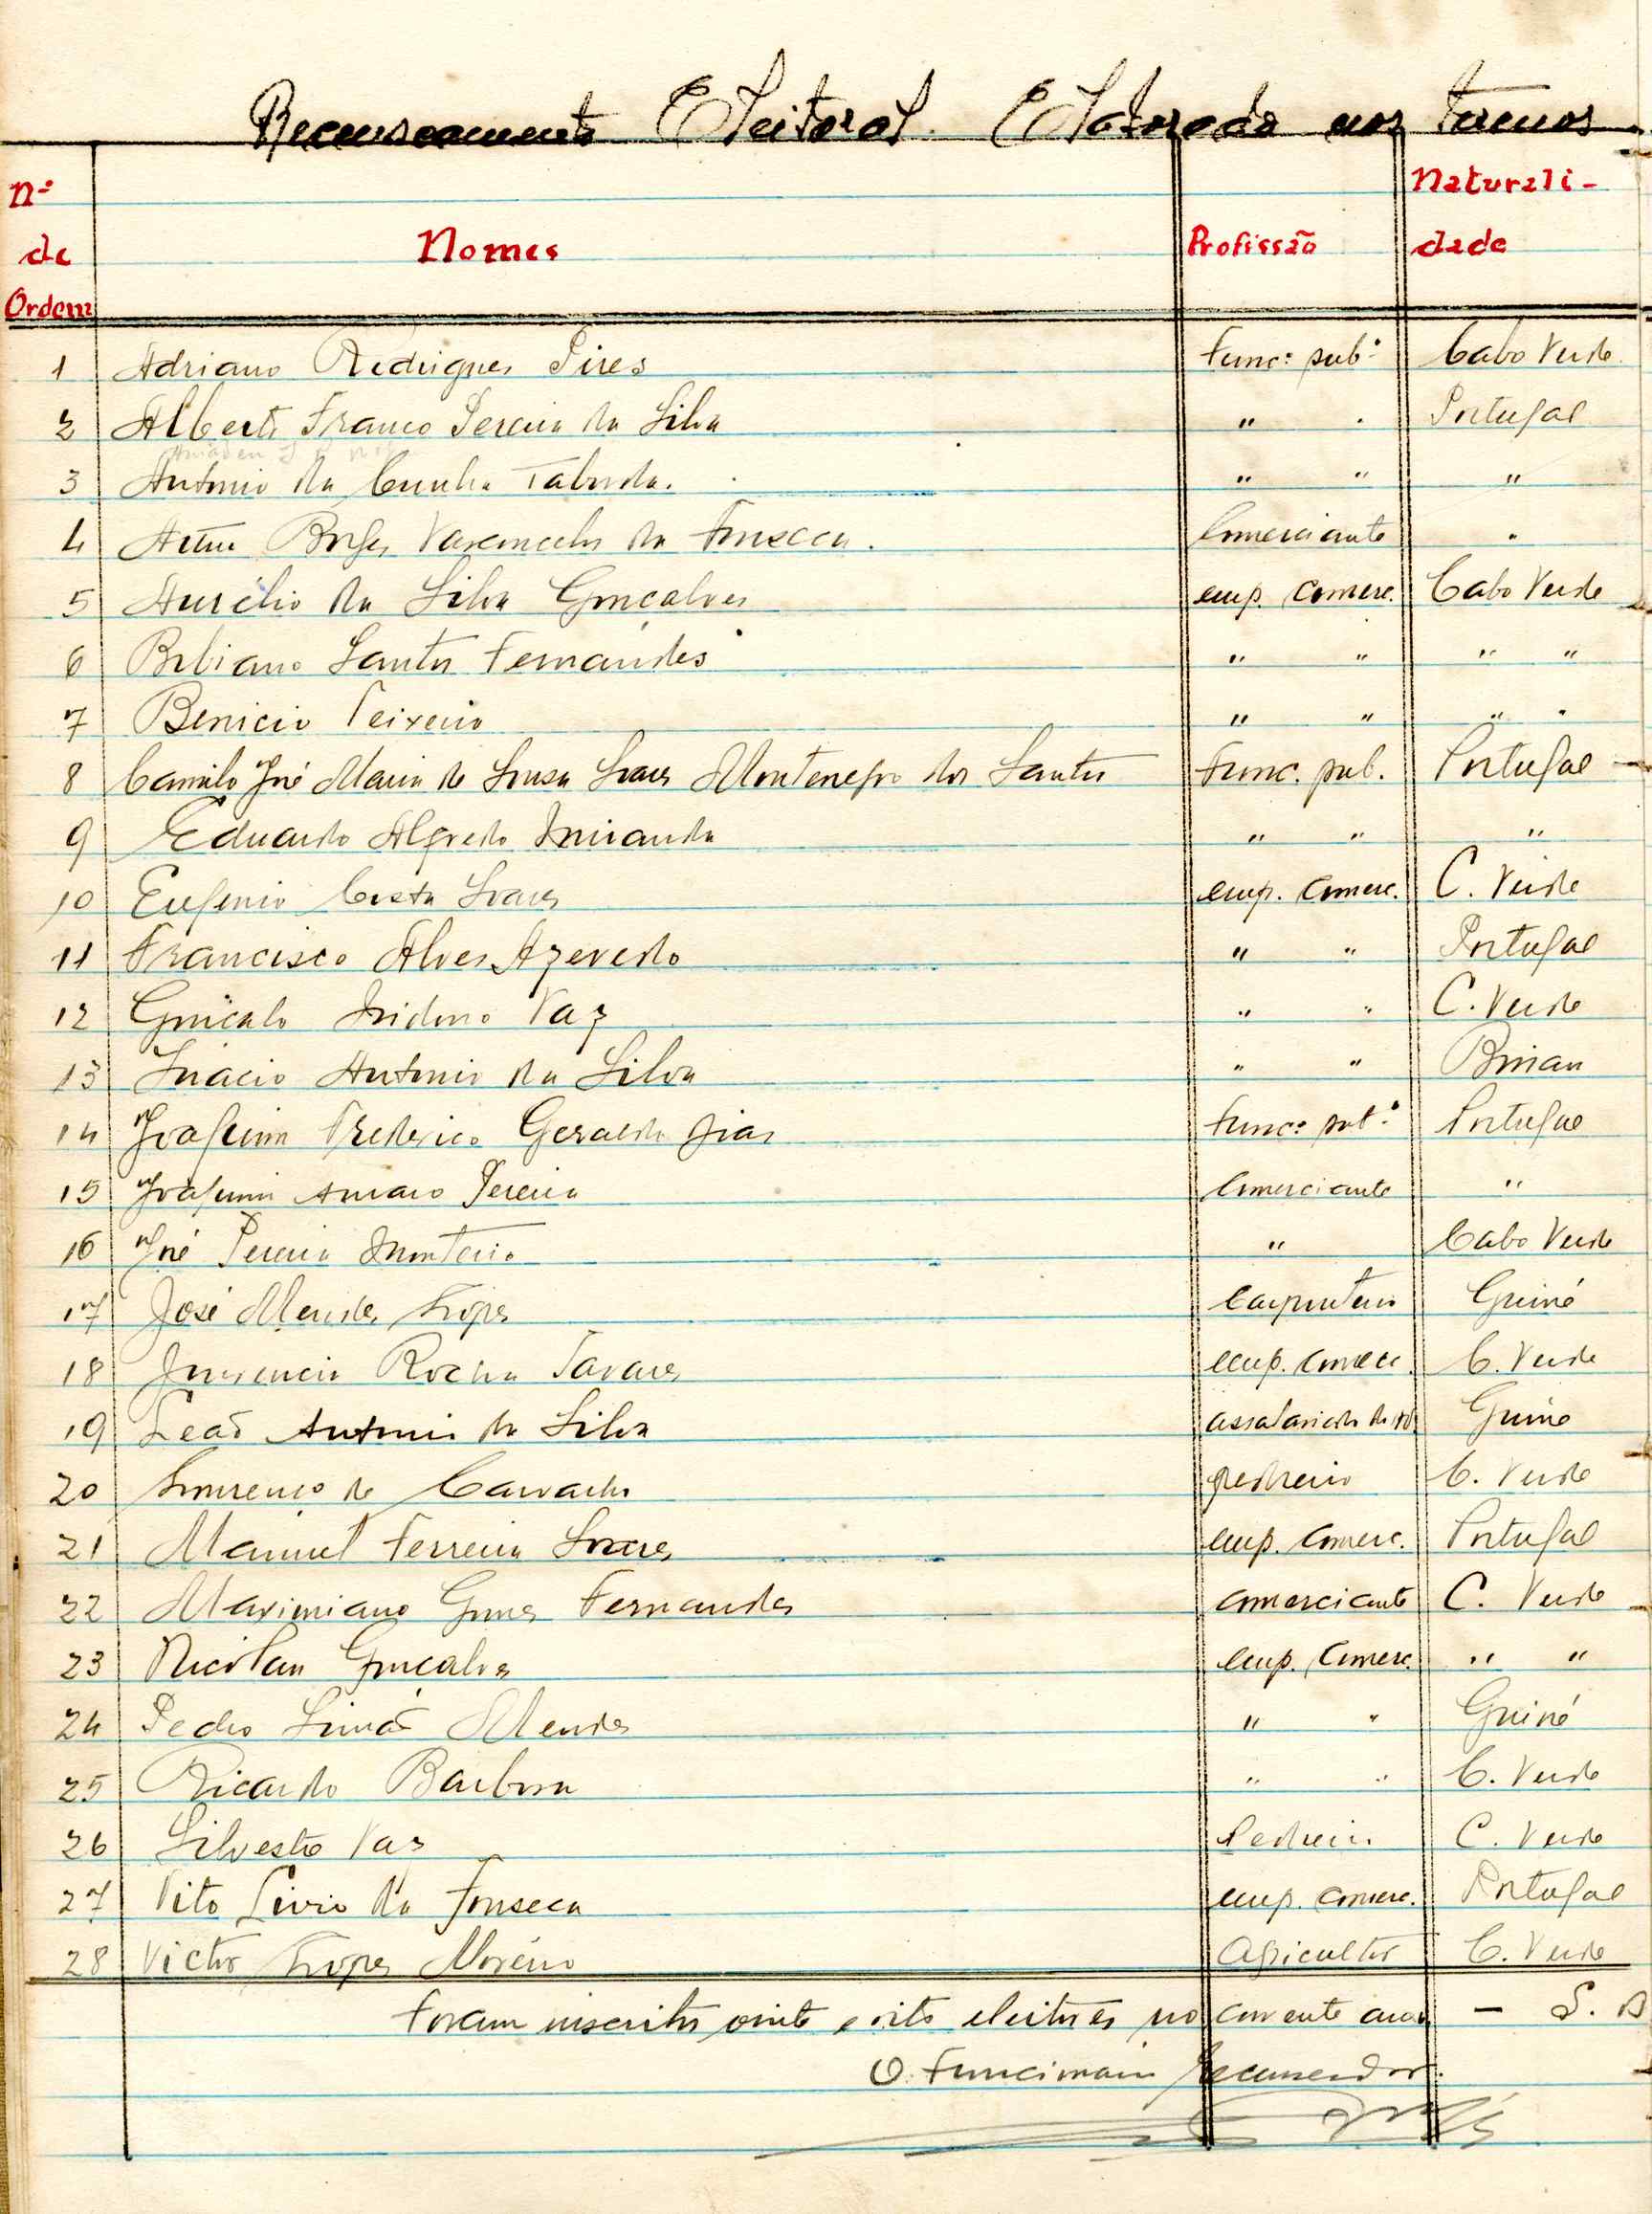 Recenseamento Eleitoral Elaborado nos termos
Nº de Ordem Nomes Profissão Naturalidade
1 Adriano Rodrigues Pires Funcº pubº Cabo Verde
2 Alberto Franco Pereira da Silva " " Portugal
3 Antonio da Cunha Taborda. " " "
4 Artur Borges Vasconcelos da Fonseca. Comerciante "
5 Aurélio da Silva Gonçalves emp. comerc. Cabo Verde
6 Bibiano Santos Fernandes " " " "
7 Benicio Teixeira " " " "
8 Camilo José Maria de Sousa Soares Montenegro dos Santos Func. pub. Portugal
9 Eduardo Alfredo Miranda " " "
10 Eugenio Costa Soares emp. comerc. C. Verde
11 Francisco Alves Azevedo " " Portugal
12 Gonçalo Isidoro Vaz " " C. Verde
13 Inácio Antonio da Silva " "
14 Joaquim Frederico Geraldo Dias Funcº pubº Portugal
15 Joaquim Amaro Pereira Comerciante "
16 José Pereira Monteiro " Cabo Verde
17 José Mendes Lopes Carpinteiro Guiné
18 Juvencio Rocha Tavares emp. comerc. C. Verde
19 Leão Antonio da Silva assalariado da Guiné
20 Lourenço de Carvalho pedreiro C. Verde
21 Manuel Ferreira Soares emp. comerc. Portugal
22 Maximiano Gomes Fernandes comerciante C. Verde
23 Nicolau Gonçalves emp. comerc. " "
24 Pedro Simão Mendes " " Guiné
25 Ricardo Barbosa " " C. Verde
26 Silvestre Vaz Pedreiro C. Verde
27 Tito Livio da Fonseca emp. comerc. Portugal
28 Victor Lopes Moreno Agricultor C. Verde
Foram inscritos vinte e oito eleitores no corrente ano — S. D
O Funcionário Recenseador.